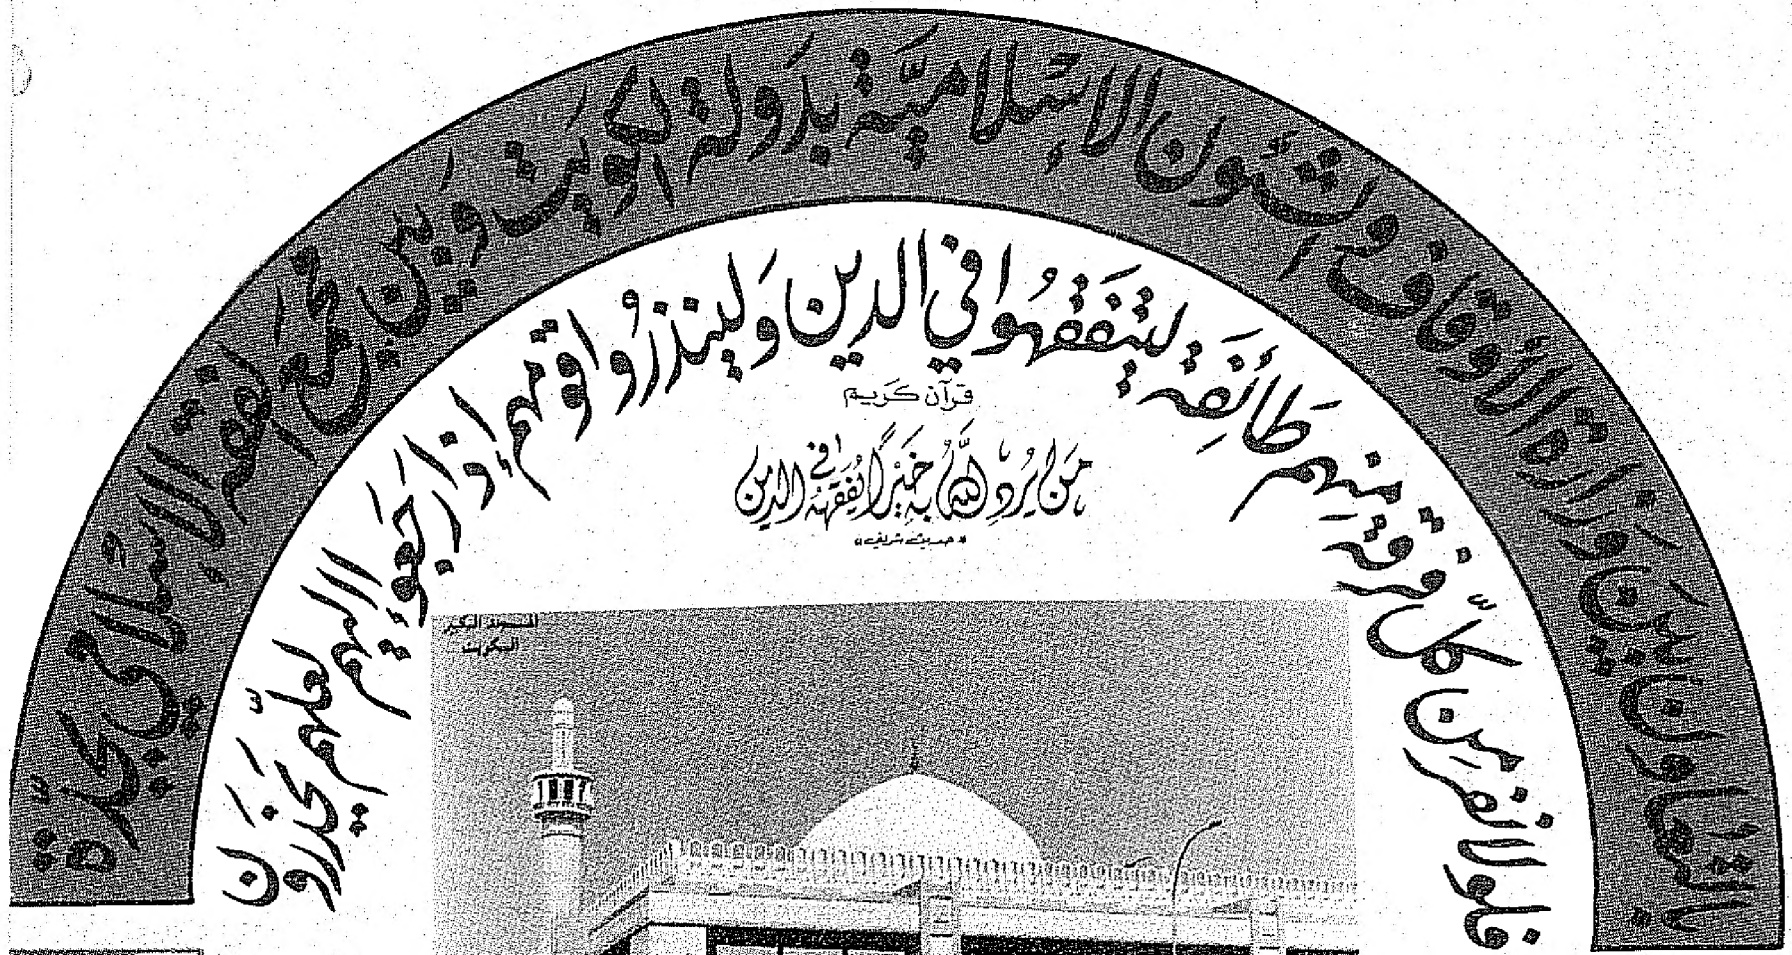 بالتعاون بين وزارة الأوقاف والشئون الإسلامية بدولة الكويت وبين مجمع الفقه الإسلامي بجدة
فلولا نفر من كل فرقة منهم طائفة ليتفقهوا في الدين ولينذروا قومهم إذا رجعوا إليهم لعلهم يحذرون
قرآن كريم
من يرد الله به خيرًا يفقهه في الدين
«حديث شريف»
المسجد الكبير
الكويت